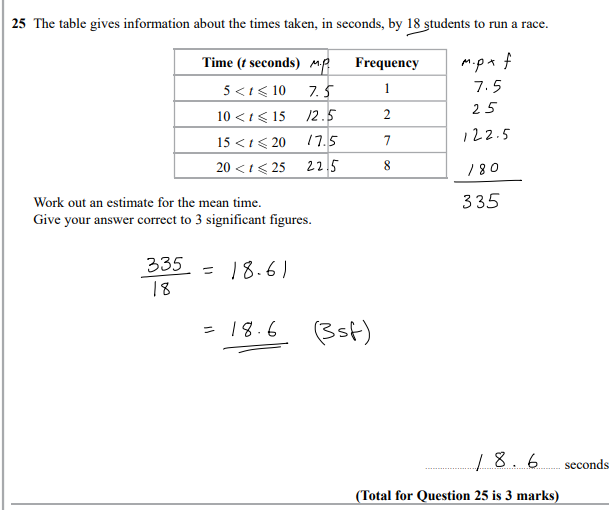 25 The table gives information about the times taken, in seconds, by 18 students to run a race.
Time (t seconds) m.p. Frequency m.p × f
5 < t ⩽ 10 7.5 1 7.5
10 < t ⩽ 15 12.5 2 25
15 < t ⩽ 20 17.5 7 122.5
20 < t ⩽ 25 22.5 8 180
335
Work out an estimate for the mean time.
Give your answer correct to 3 significant figures.
335/18 = 18.61
= 18.6 (3sf)
18.6 seconds
(Total for Question 25 is 3 marks)